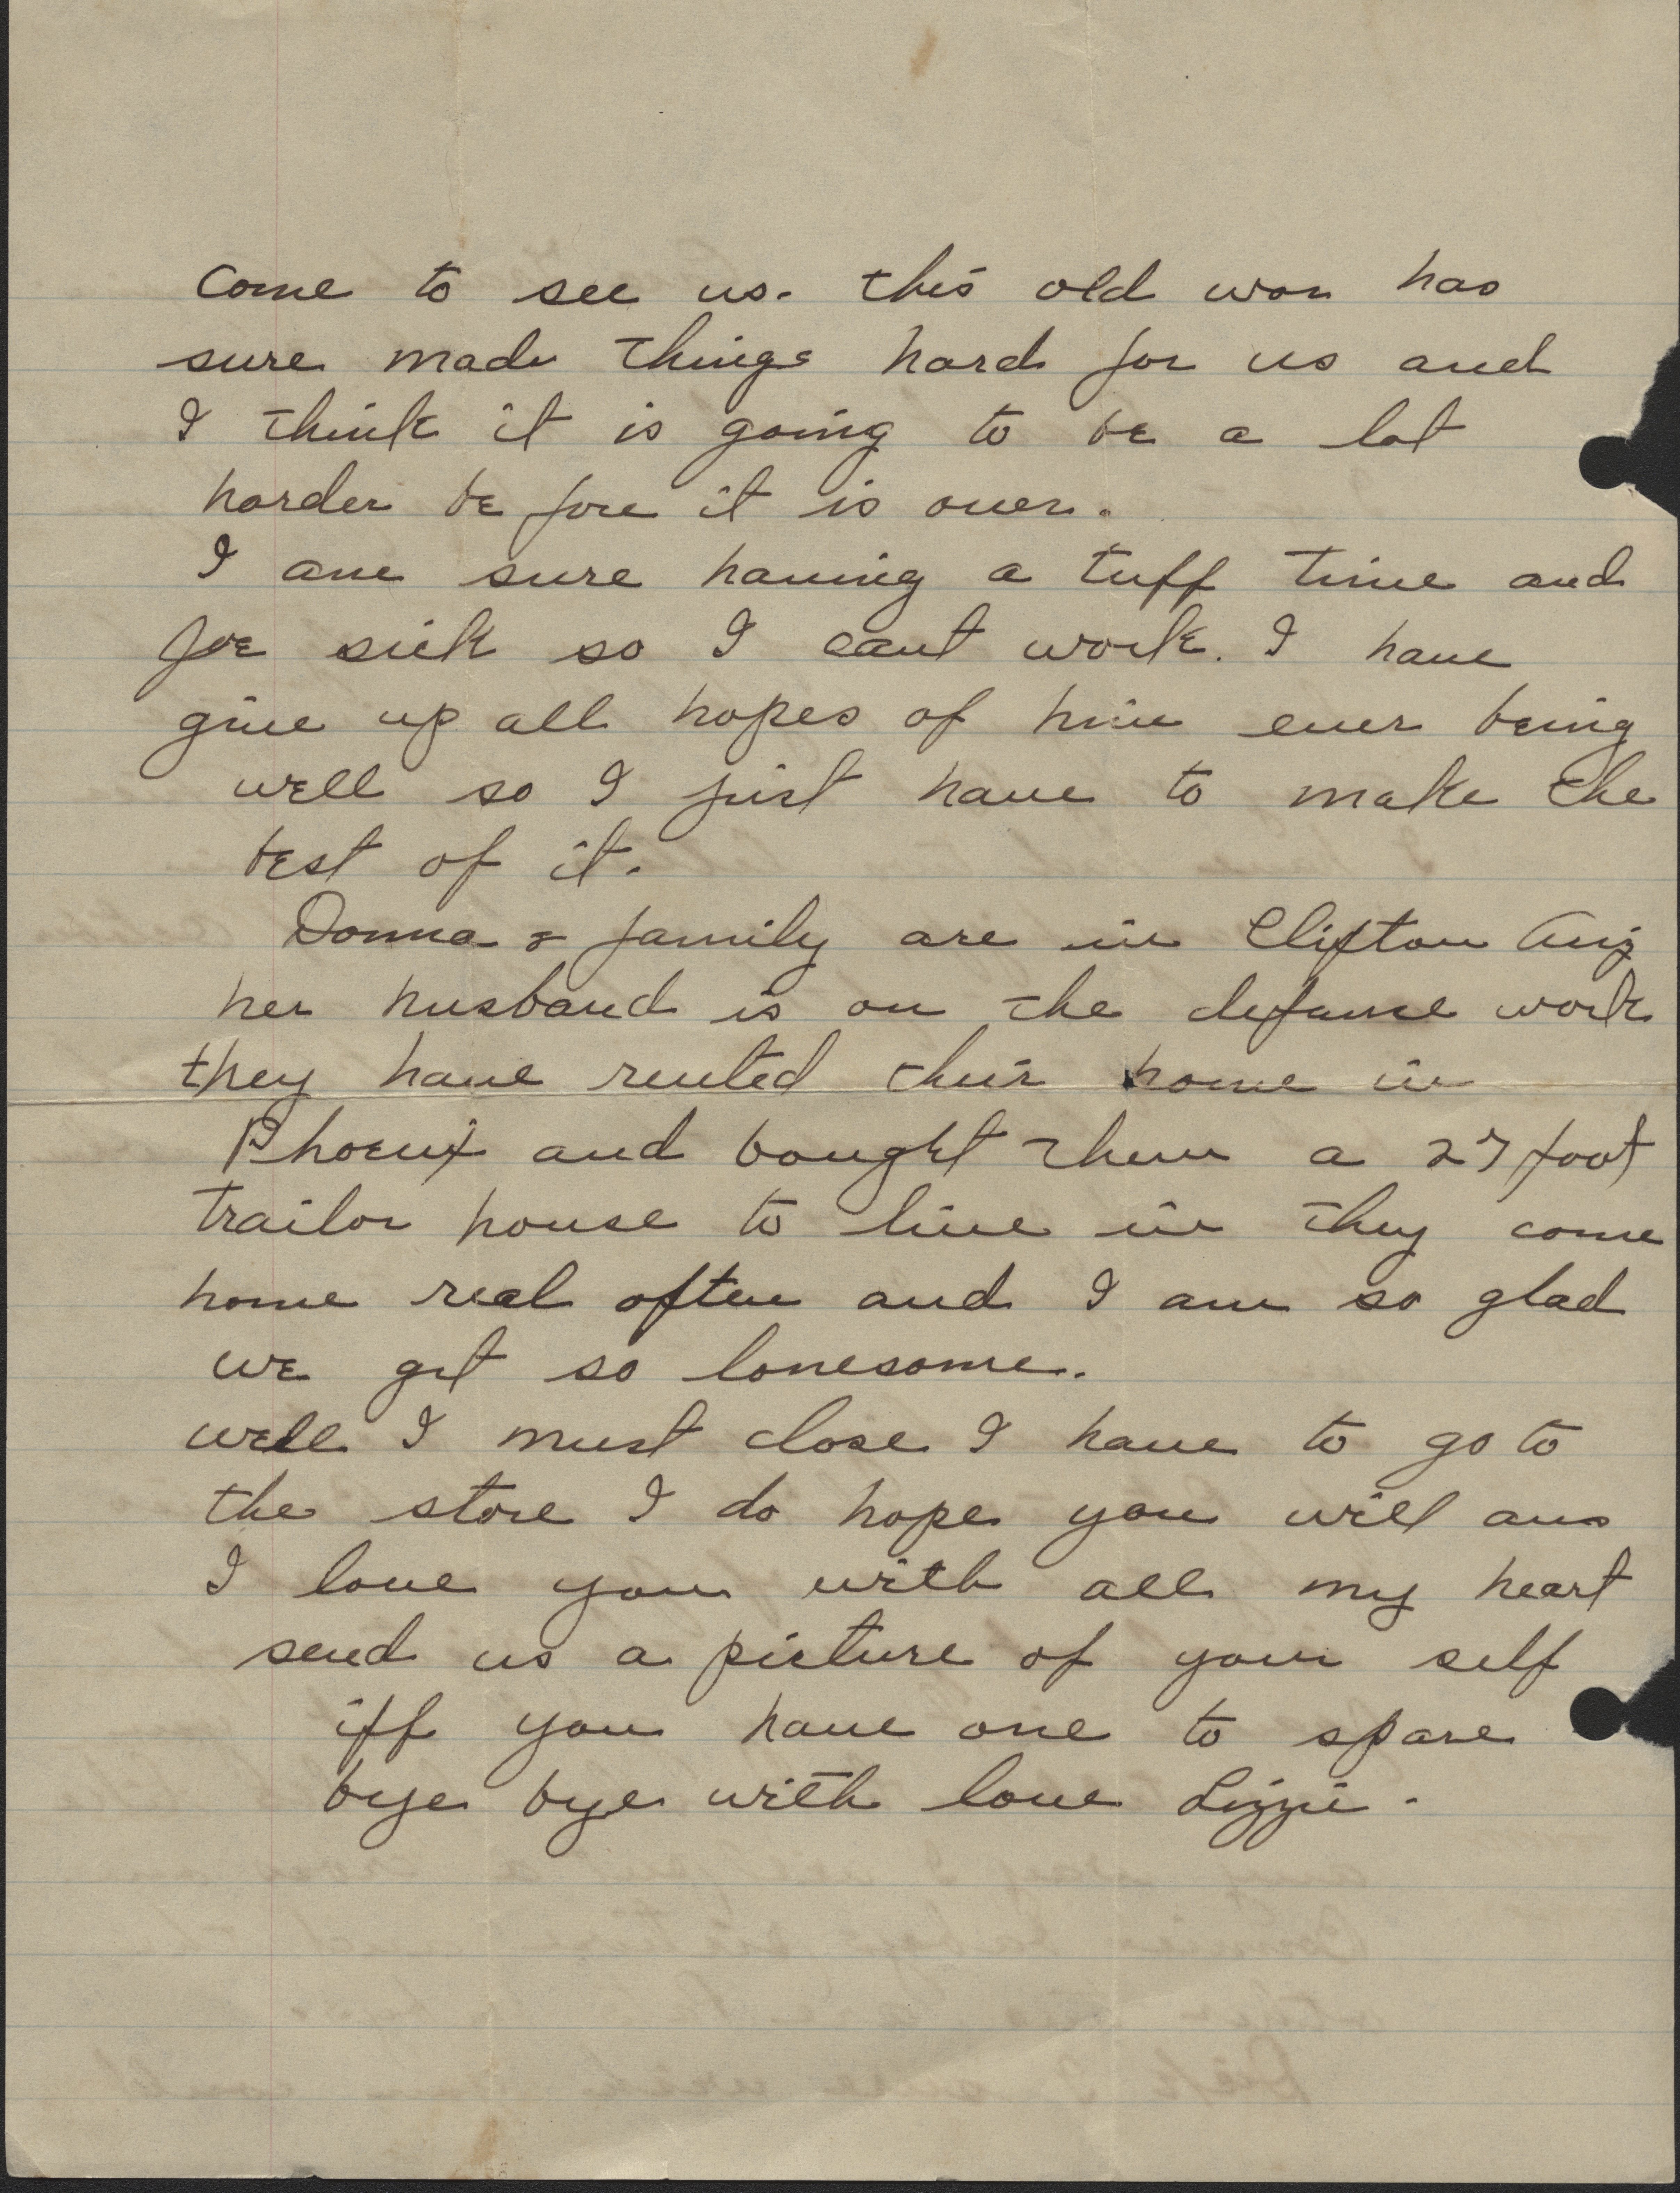 Come to see us. this old war has
sure made things hard for us and
I think it is going to be a lot
harder be fore it is over.
I am sure having a tuff time and
Joe sick so I cant work. I have
give up all hopes of him ever being
well so I just have to make the
best of it.
Donna & family are in Clifton Ariz
her husband is on the defense work
they have rented their home in
Phoenix and bought them a 27 foot
trailor house to live in they come
home real often and I am so glad
we get so lonesome.
well I must close I have to go to
the store I do hope you will ans
I love you with all my heart
send us a picture of your self
iff you have one to spare
bye bye with love Lizzie.